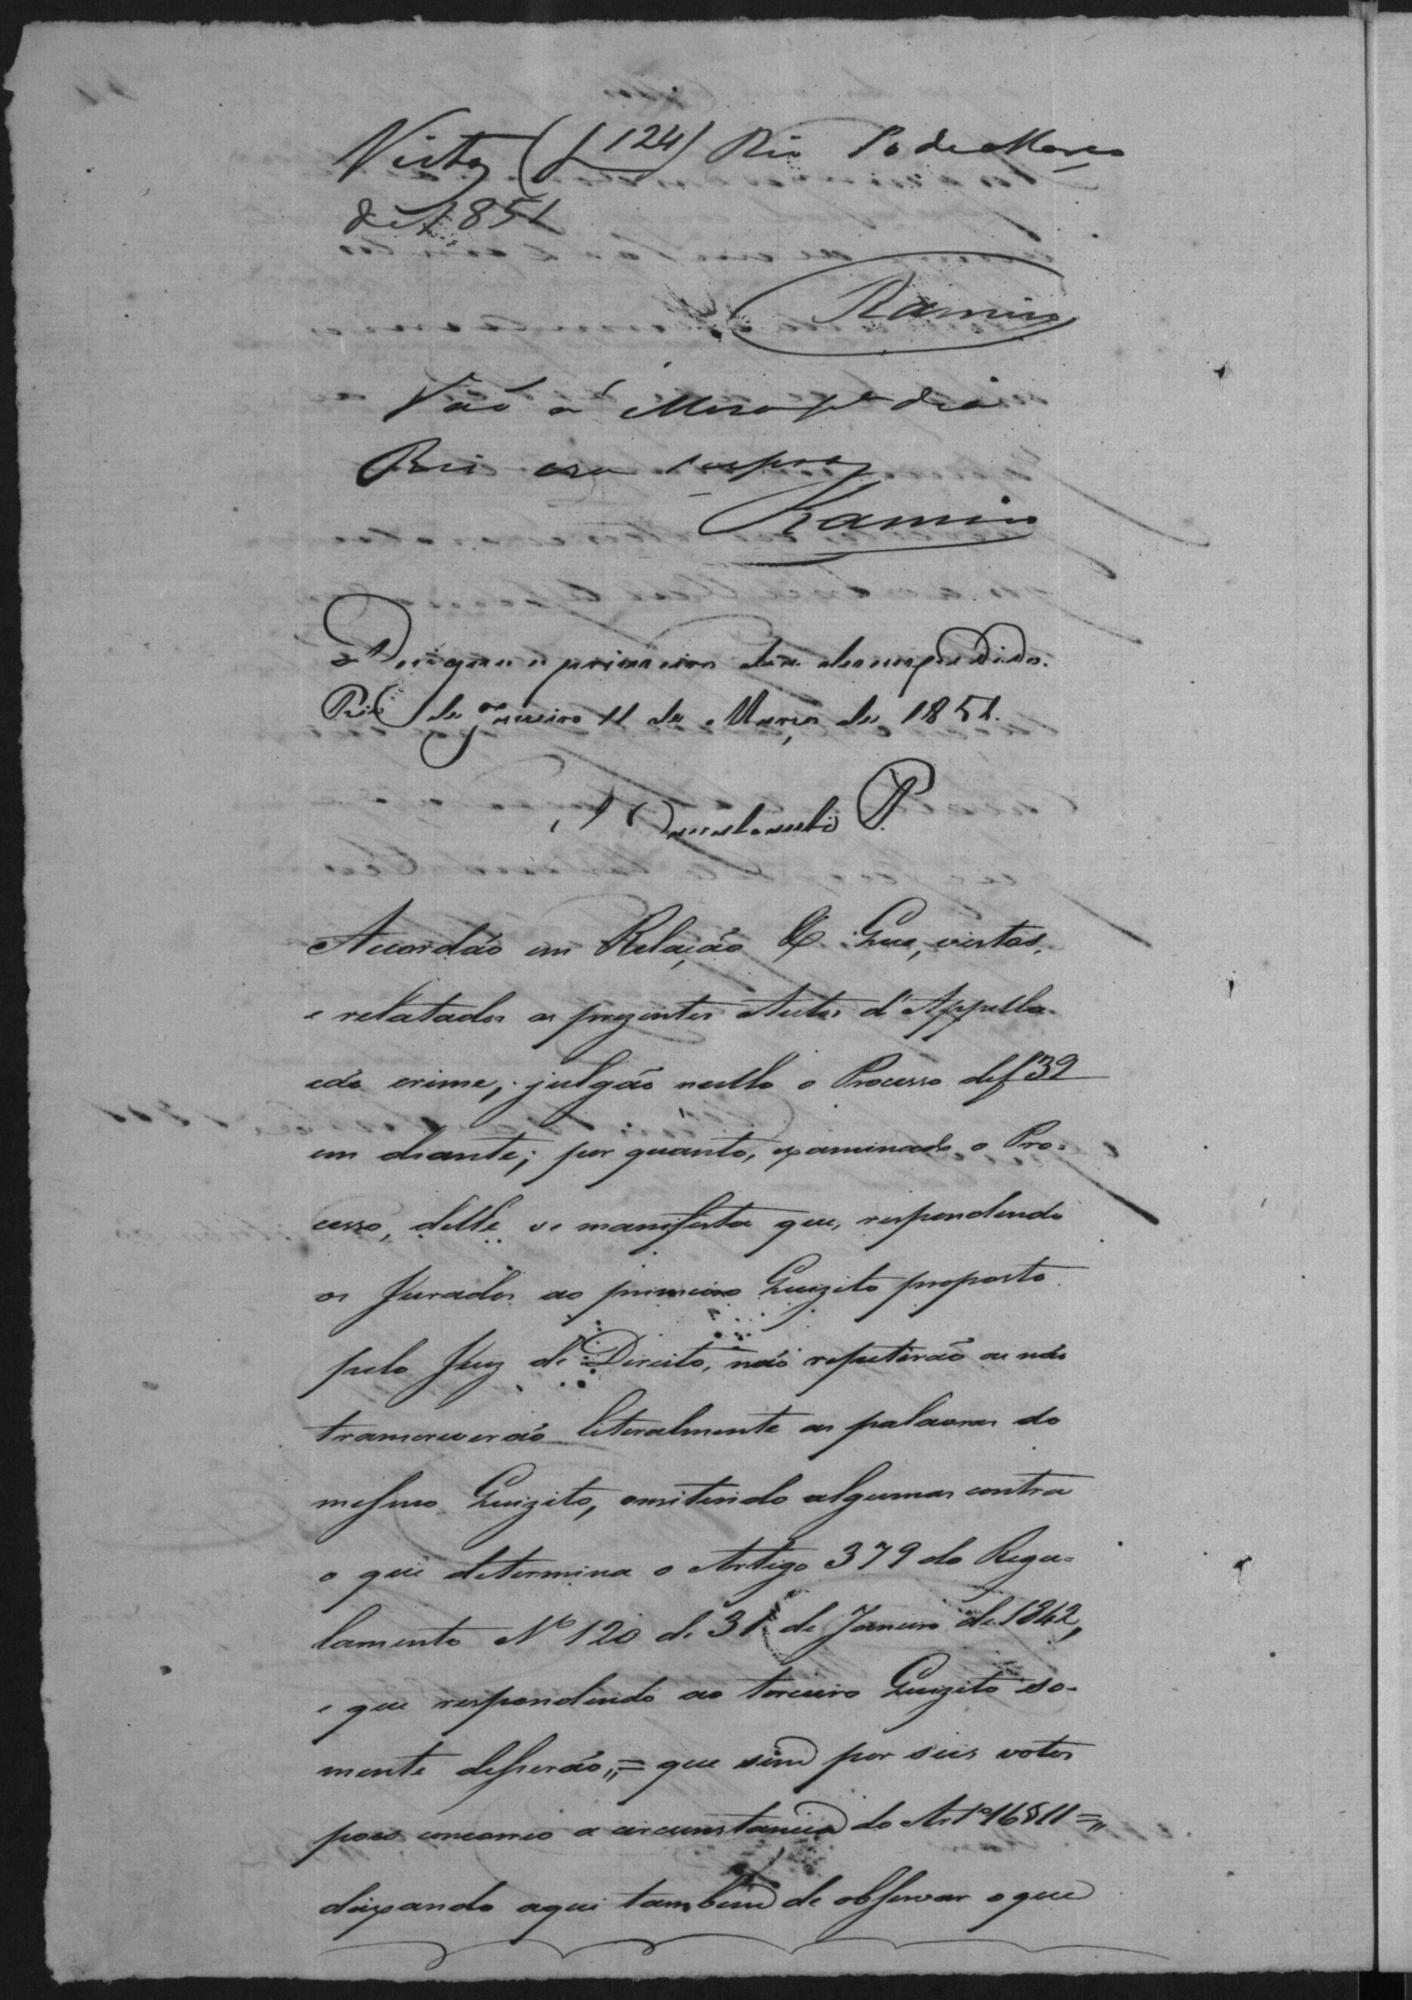 Vistos (f 124) Rio 10 de Março
de 1851
Ramiro
Vão á Mesa pª dia
Rio era supra
Ramiro
Designo o primeiro dia desimpedido.
Rio de Janeiro 11 de Março de 1851.
P.
Accordão em Relação &. Que, vistos,
e relatados os prezentes Autos d'Appella-
ção crime, julgão nullo o Processo de f 32
em diante; por quanto, examinado o Pro-
cesso, delle se manifesta que, respondendo
os Jurados ao primeiro Quizito proposto
pelo Juiz de Direito, não repetirão ou não
transcreverão literalmente as palavras do
mesmo Quizito, omitindo algumas contra
o que determina o Artigo 379 do Regu-
lamento Nº 120 de 31 de Janeiro de 1842,
e que respondendo ao terceiro Quizito so-
mente disserão,,= que sim por seis votos
pois concorreo a circunstancia do Artº 16 § 11 =,,
deixando aqui tambem de observar o que